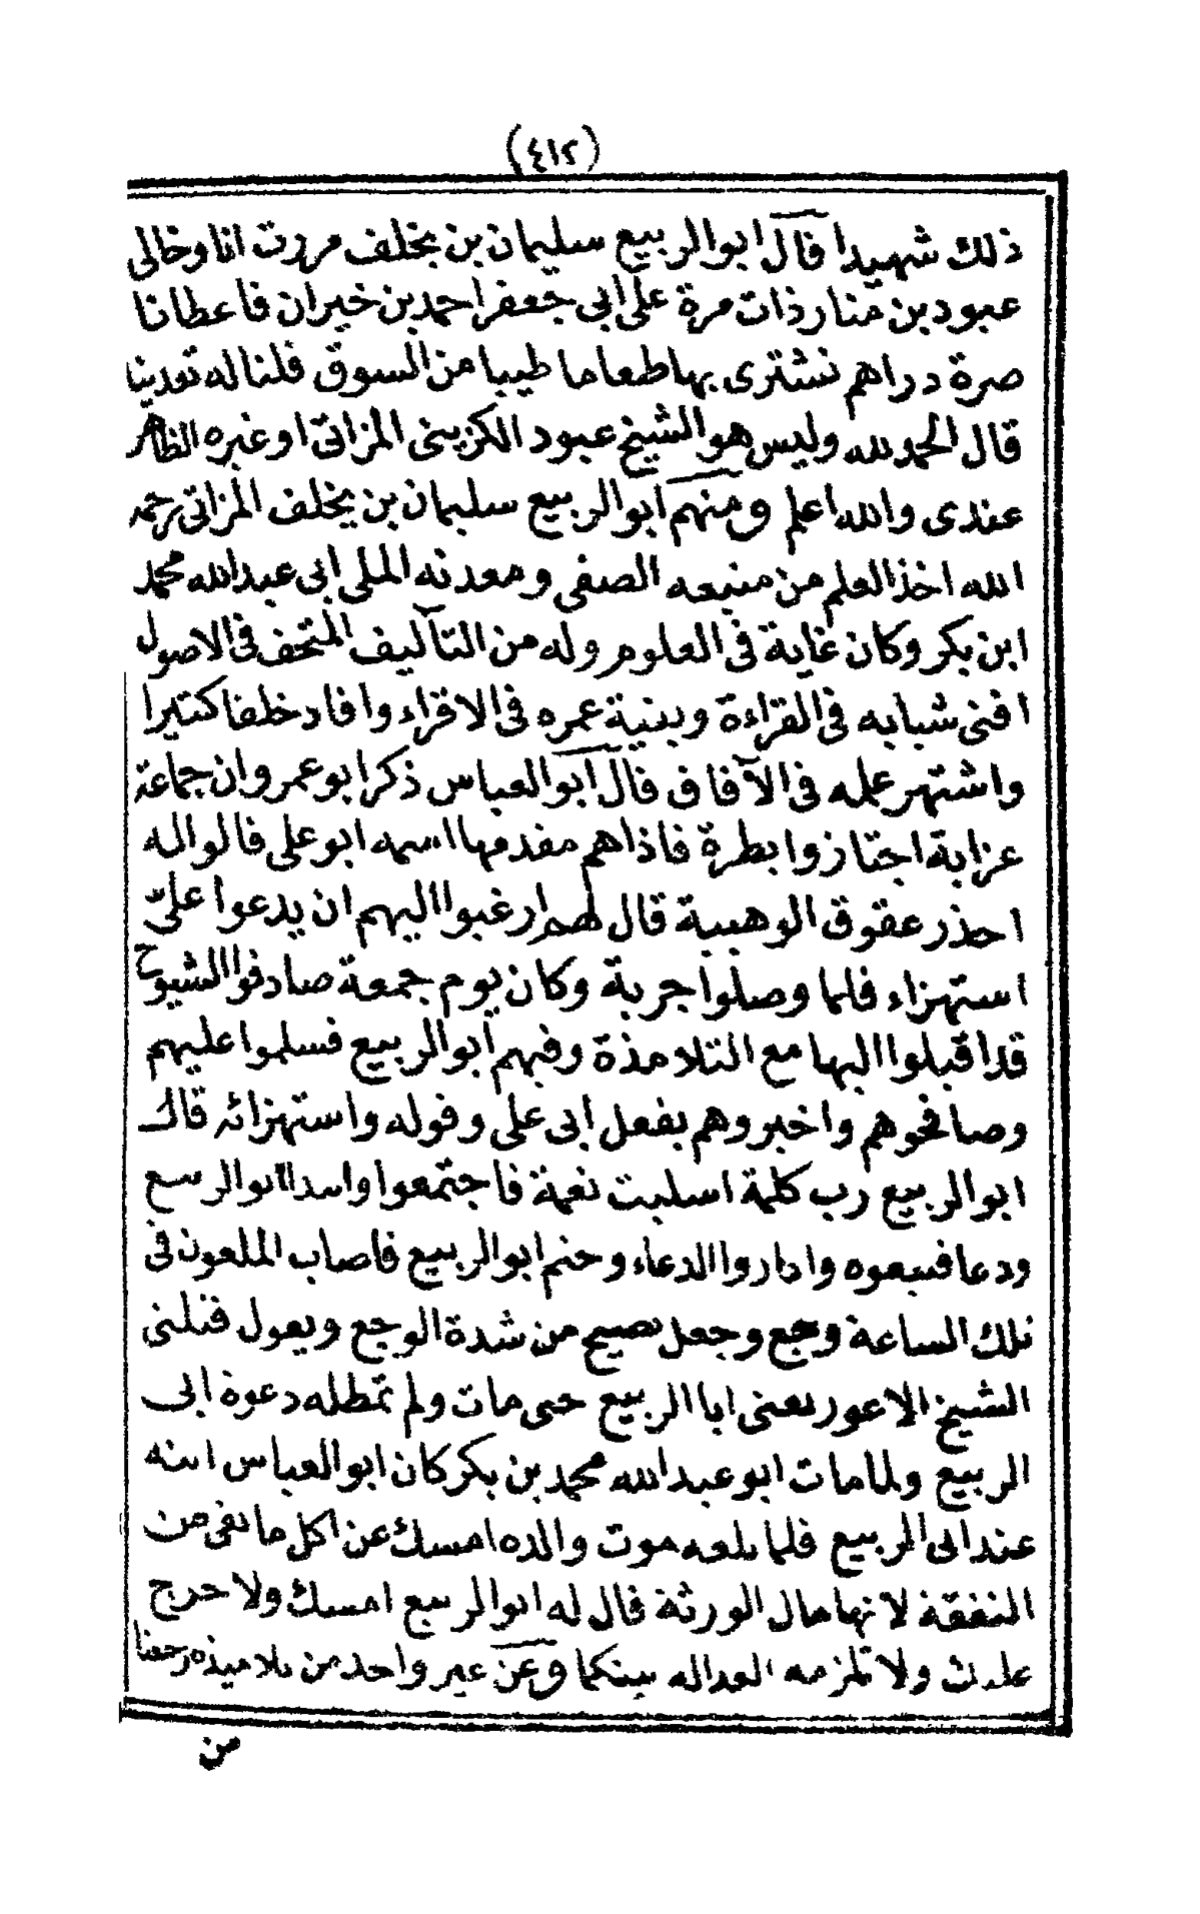 (٤١٢)
ذلك شهيدا قال ابو الربيع سليمان بن يخلف مررت انا وخالي
عبود بن منار ذات مرة على ابي جعفر احمد بن خيران فاعطانا
صرة دراهم نشترى بها طعاما طيبا من السوق فلنا له تعدينا
قال الحمد لله وليس هو الشيخ عبود الكزينى المزاتى او غيره الظاهر
عندى والله اعلم ومنهم ابو الربيع سليمان بن يخلف المزاتى رحمه
الله اخذ العلم من منبعه الصفى ومعدنه الملى ابى عبد الله محمد
ابن بكر وكان غاية فى العلوم وله من التآليف المتحف فى الاصول
افنى شبابه فى القراءة وبنية عمره فى الاقراء وافاد خلفا كثيرا
واشتهر علمه فى الآفاق قال ابو العباس ذكر ابو عمرو ان جماعة
عزابة اجتازوا بطرة فاذا هم مقدمها اسمه ابو على قالوا له
احذر عقوق الوهبية قال لهم ارغبوا اليهم ان يدعوا علىّ
استهزاء فلما وصلوا جربة وكان يوم جمعة صادفوا الشيوخ
قد اقبلوا اليها مع التلامذة وفيهم ابو الربيع فسلموا عليهم
وصافحوهم واخبروهم بفعل ابى على وقوله واستهزائه قال
ابو الربيع رب كلمة اسلبت نعمة فاجتمعوا وابتدا ابو الربيع
ودعا فتبعوه واداروا الدعاء وختم ابو الربيع فاصاب الملعون فى
تلك الساعة وجع وجعل يصيح من شدة الوجع ويعول قتلنى
الشيخ الاعور يعنى ابا الربيع حتى مات ولم تمطله دعوة ابى
الربيع ولما مات ابو عبد الله محمد بن بكر كان ابو العباس ابنه
عند ابى الربيع فلما بلغه موت والده امسك عن اكل ما بقى من
النفقة لانها مال الورثة قال له ابو الربيع امسك ولا حرج
عليك ولا تلزمه العداله بينكما وعن غير واحد من تلاميذه رجعنا
من